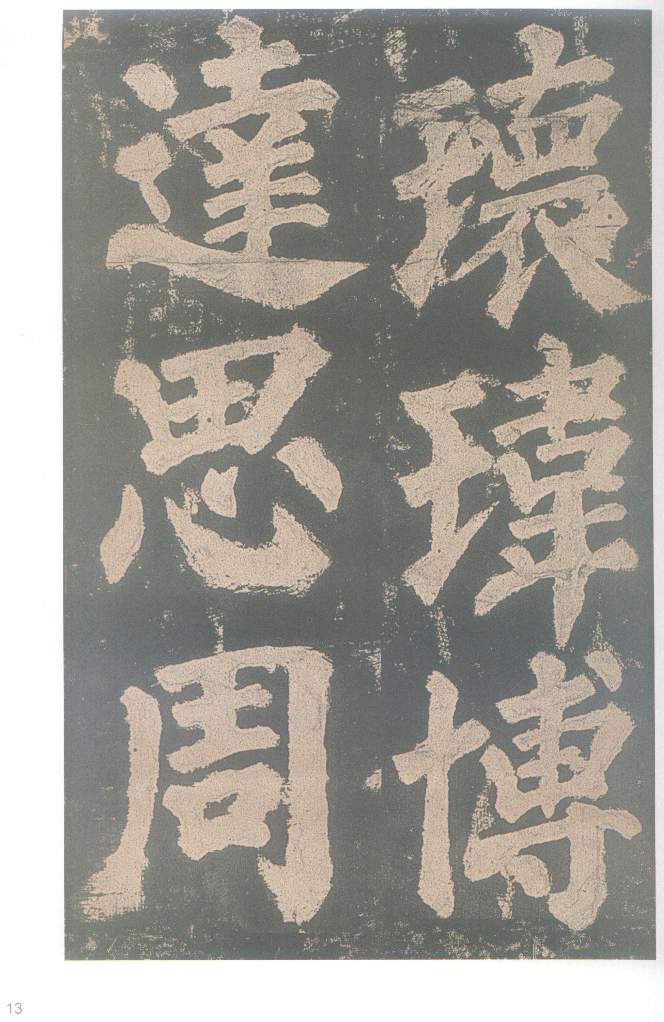 瓌瑋博
達思周
13